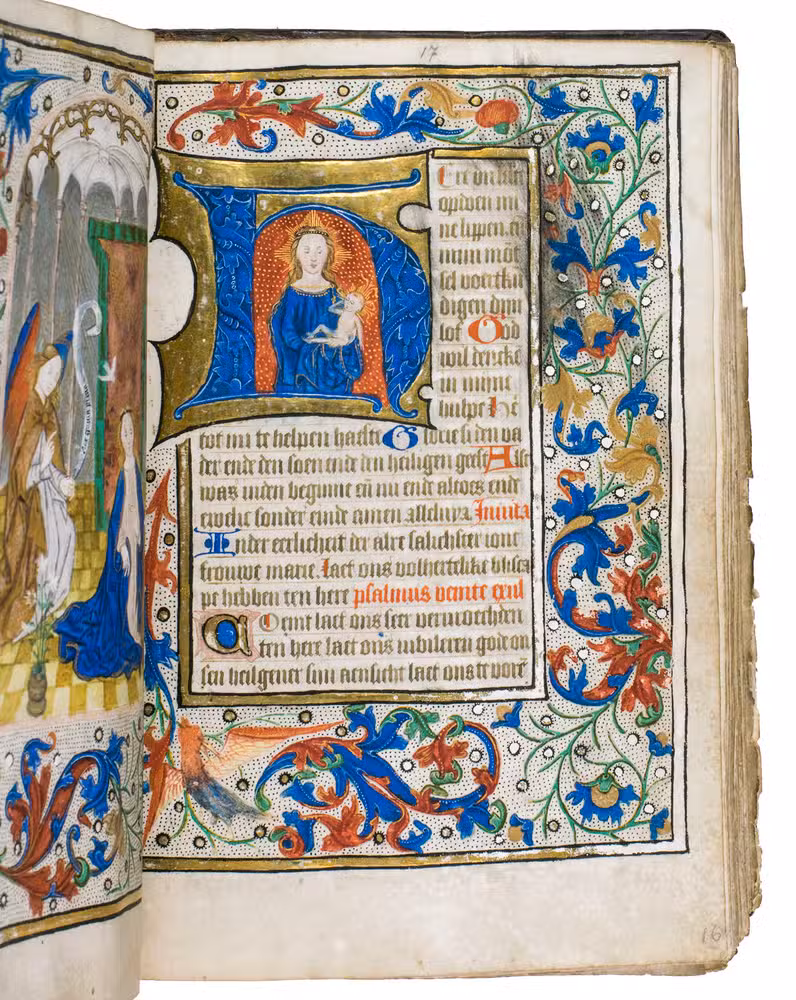 17
opdoen mi
ne lippen. eñ
minn mōt
sel voertkū
digen dijn
lof God
wil dencke
in mijnre
hulpe He
tot mi te helpen haeste Glorie si den va
der ende den soen ende den heiligen geest Alst
was inden beginne eñ nu ende altoes ende
ewelic sonder einde amen alleluya Inuita
Inder eerlicheit der alre salichster ionc
frouwe marie. laet ons volhertelike blisca
pe hebben ten here psalmus venite exul
Coemt laet ons seer vervroechden
ten here laet ons iubileren gode on
sen heilgeuer sijn aensicht laet ons te vorē
16